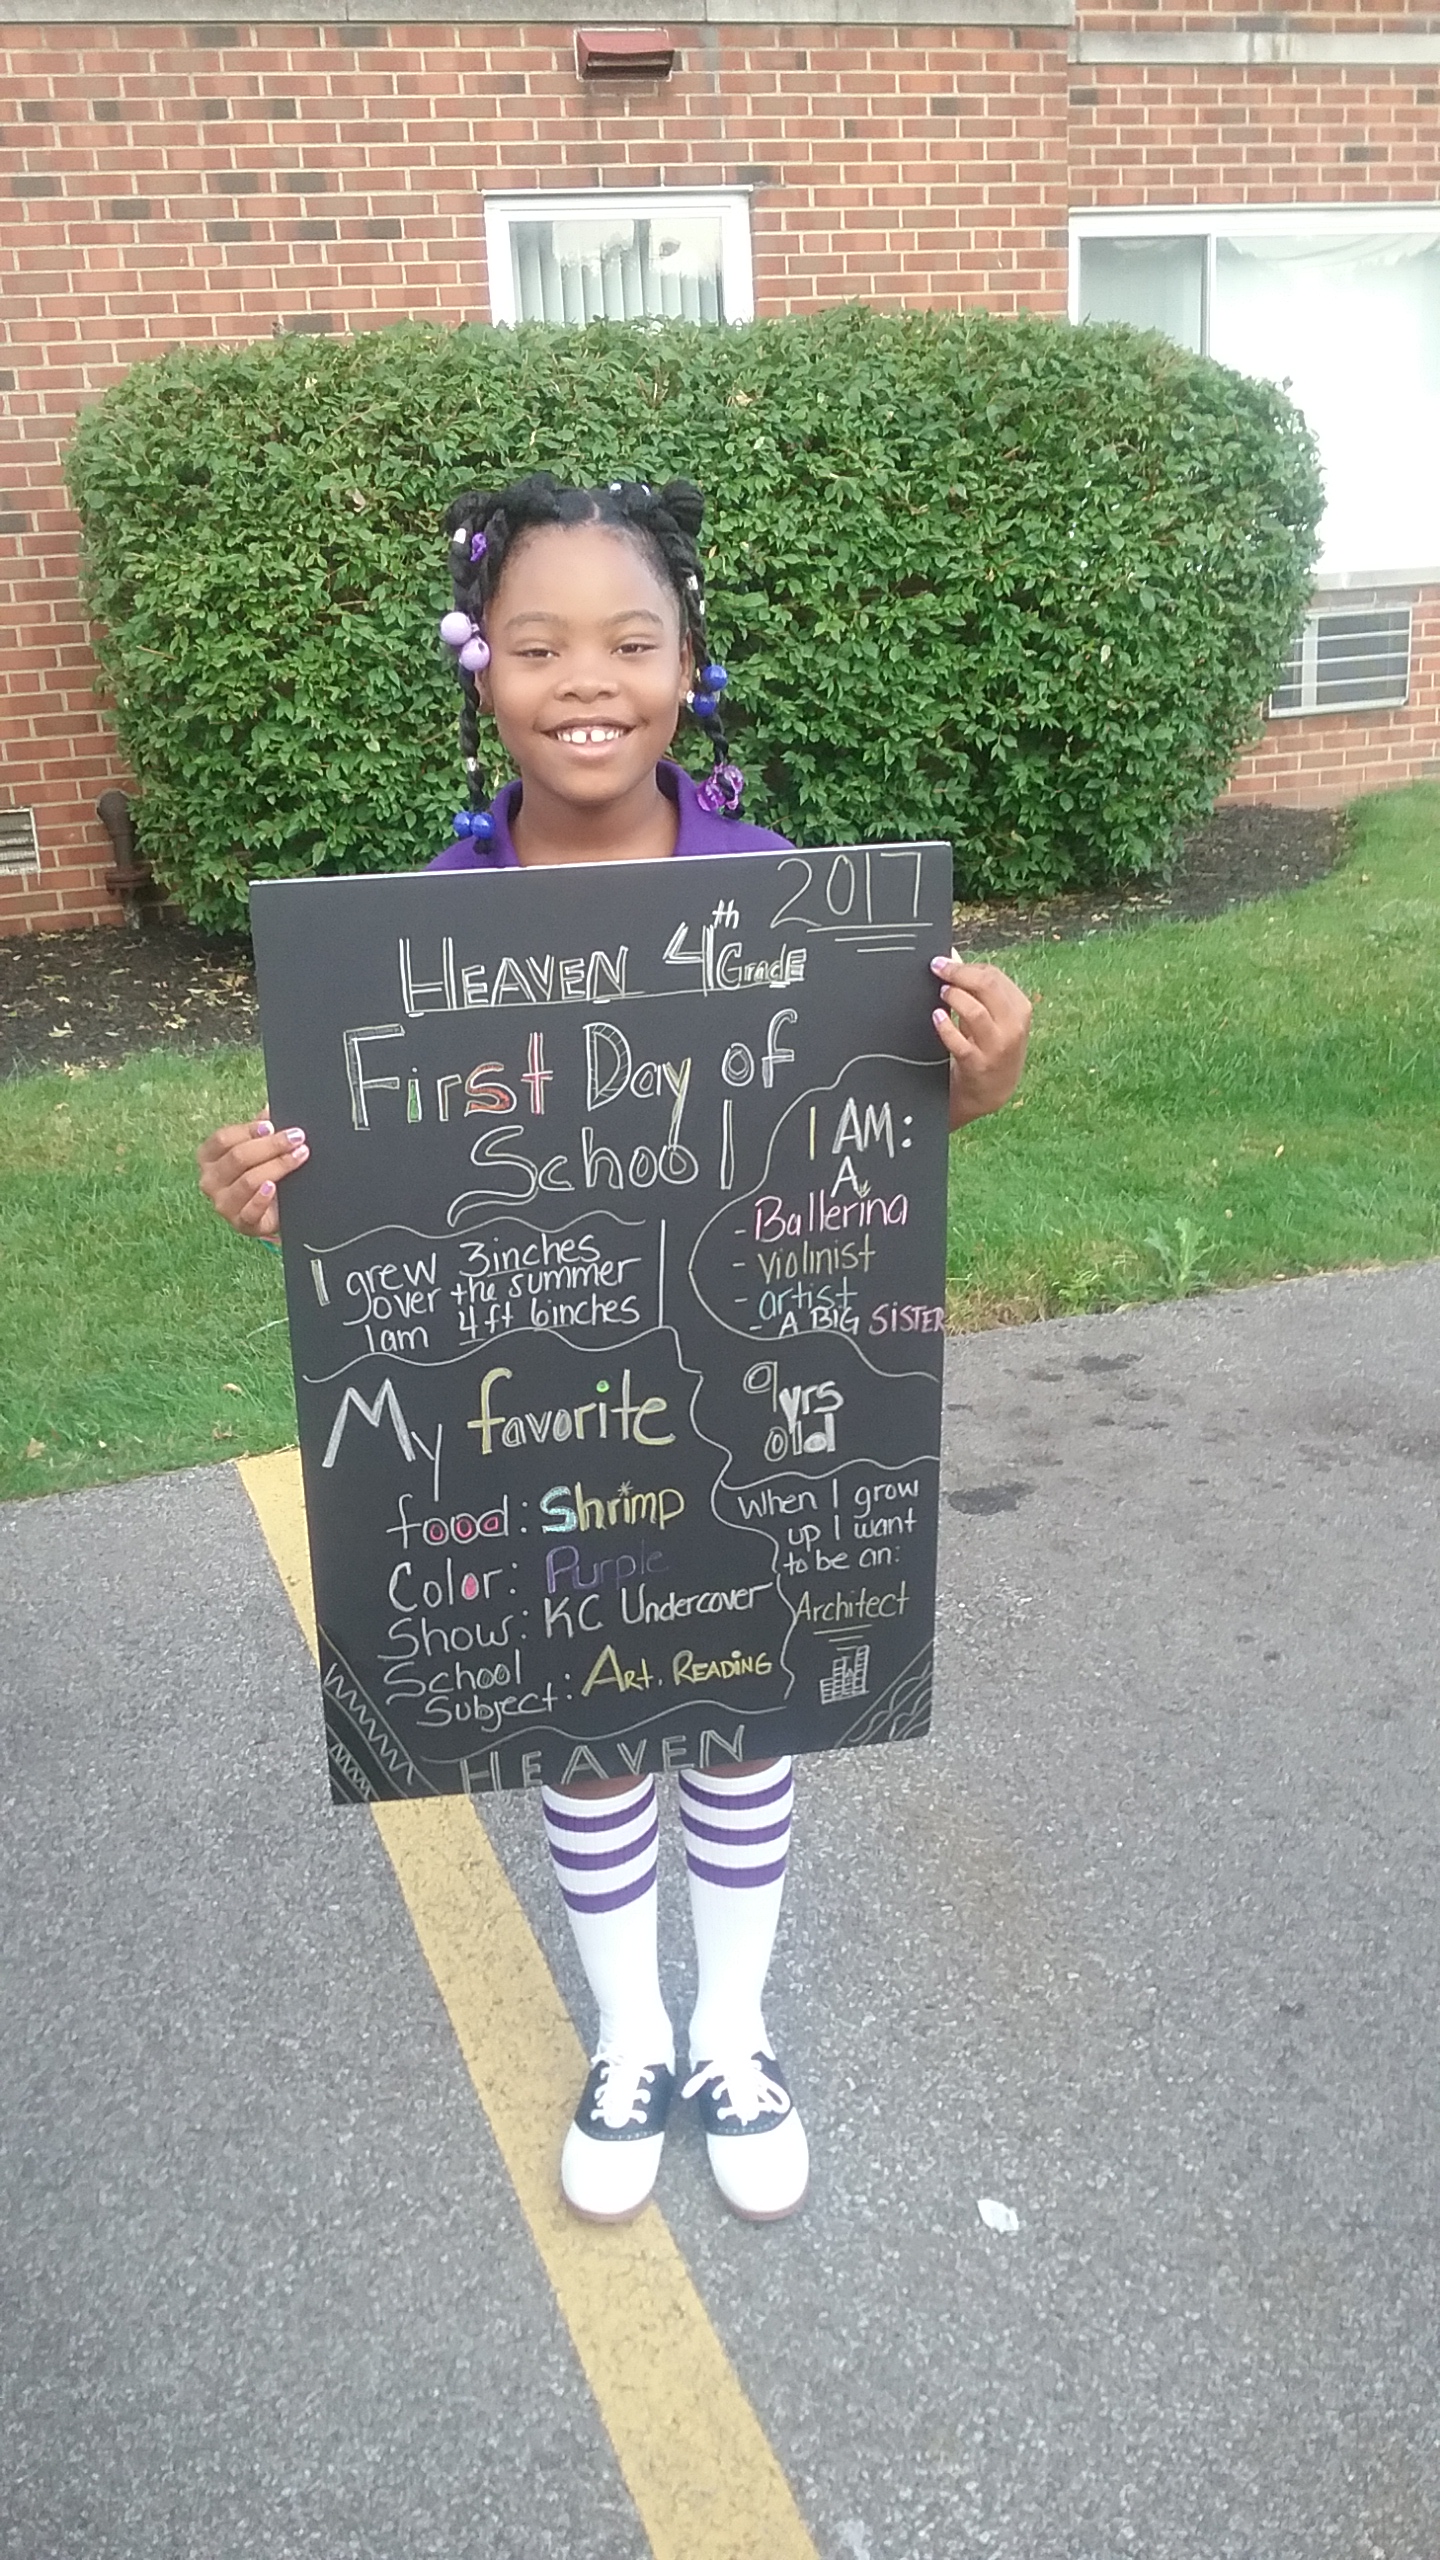 2017
HEAVEN 4th GradE
First Day of
School
I AM:
A
- Ballerina
- violinist
- artist
- A BiG SISTER
I grew 3inches
over the summer
I am 4ft 6inches
My favorite
food: Shrimp
Color: Purple
Show: KC Undercover
School
Subject: ART, READING
9yrs
old
When I grow
up I want
to be an:
Architect
HEAVEN